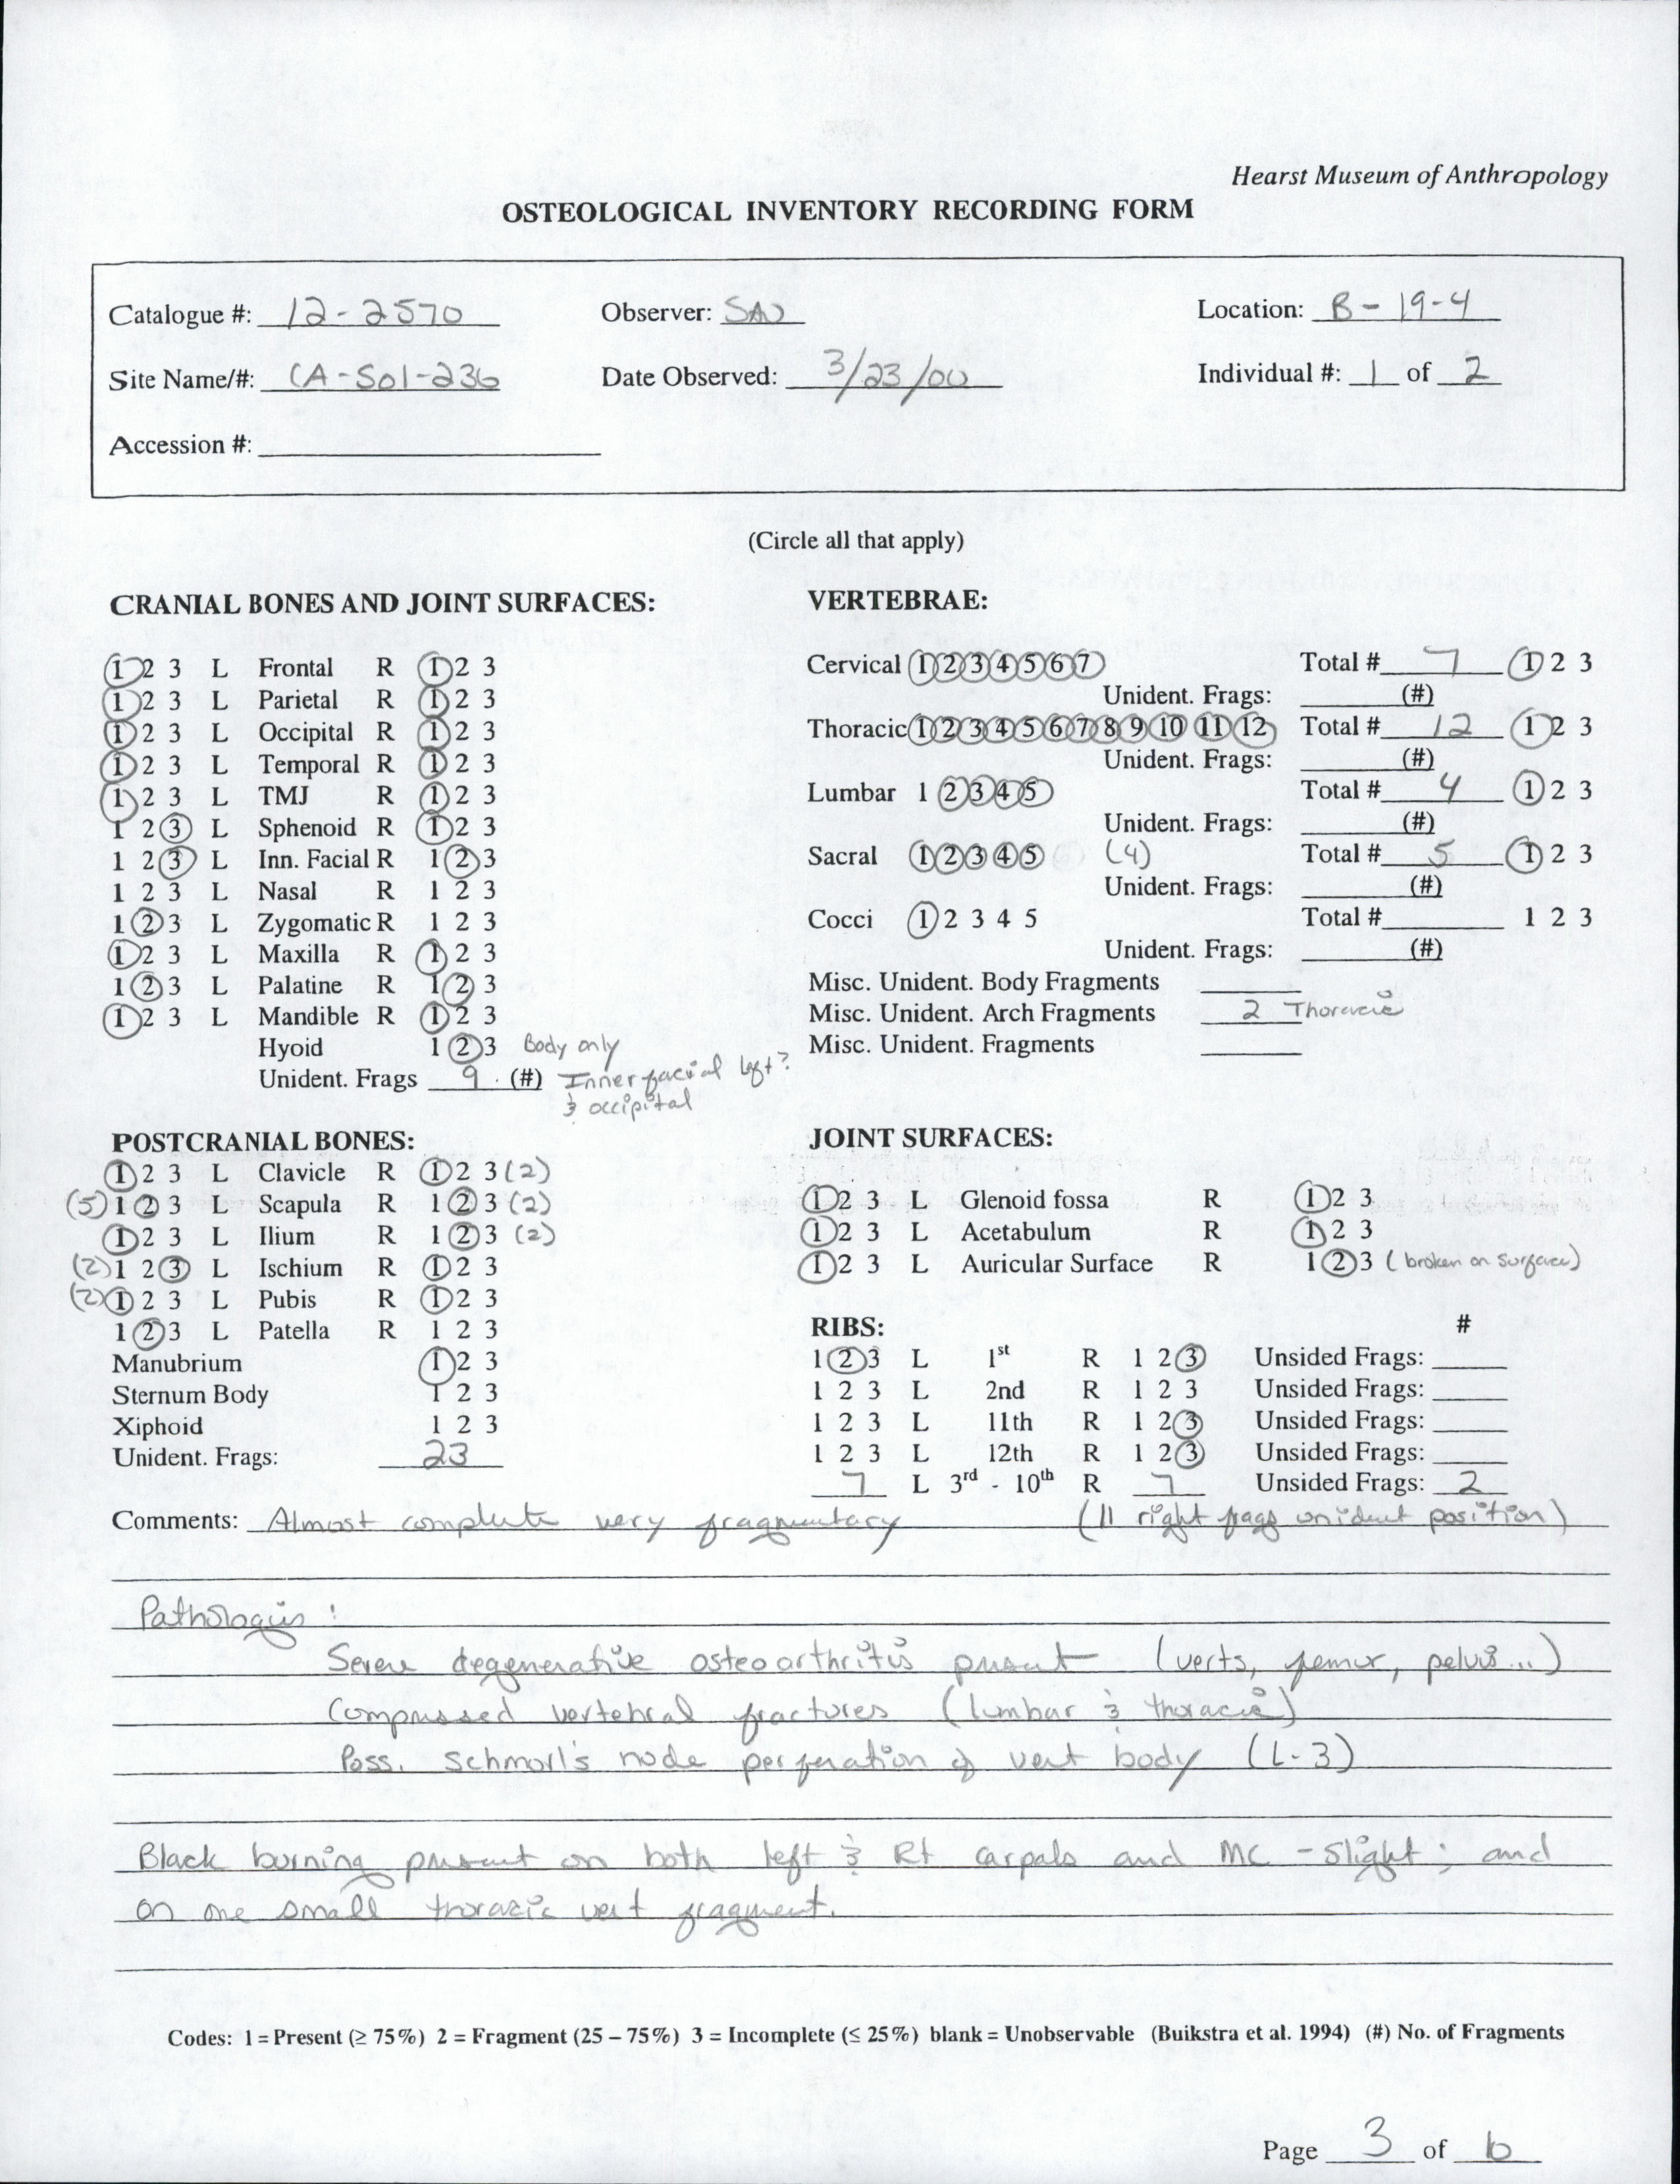 Hearst Museum of Anthropology
OSTEOLOGICAL INVENTORY RECORDING FORM
Catalogue #: 12-2570 Observer: SAW Location: B-19-4
Site Name/#: CA-Sol-236 Date Observed: 3/23/00 Individual #: 1 of 2
Accession #:
(Circle all that apply)
CRANIAL BONES AND JOINT SURFACES:
1 2 3 L Frontal R 1 2 3
1 2 3 L Parietal R 1 2 3
1 2 3 L Occipital R 1 2 3
1 2 3 L Temporal R 1 2 3
1 2 3 L TMJ R 1 2 3
1 2 3 L Sphenoid R 1 2 3
1 2 3 L Inn. Facial R 1 2 3
1 2 3 L Nasal R 1 2 3
1 2 3 L Zygomatic R 1 2 3
1 2 3 L Maxilla R 1 2 3
1 2 3 L Palatine R 1 2 3
1 2 3 L Mandible R 1 2 3
Hyoid 1 2 3 Body only
Unident. Frags 9 (#) Inner facial left?
& occipital
VERTEBRAE:
Cervical 1 2 3 4 5 6 7 Total # 7 1 2 3
Unident. Frags: (#)
Thoracic 1 2 3 4 5 6 7 8 9 10 11 12 Total # 12 1 2 3
Unident. Frags: (#)
Lumbar 1 2 3 4 5 Total # 4 1 2 3
Unident. Frags: (#)
Sacral 1 2 3 4 5 (4) Total # 5 1 2 3
Unident. Frags: (#)
Cocci 1 2 3 4 5 Total # 1 2 3
Unident. Frags: (#)
Misc. Unident. Body Fragments
Misc. Unident. Arch Fragments 2 Thoracic
Misc. Unident. Fragments
POSTCRANIAL BONES:
1 2 3 L Clavicle R 1 2 3 (2)
(5) 1 2 3 L Scapula R 1 2 3 (2)
1 2 3 L Ilium R 1 2 3 (2)
(2) 1 2 3 L Ischium R 1 2 3
(2) 1 2 3 L Pubis R 1 2 3
1 2 3 L Patella R 1 2 3
Manubrium 1 2 3
Sternum Body 1 2 3
Xiphoid 1 2 3
Unident. Frags: 23
JOINT SURFACES:
1 2 3 L Glenoid fossa R 1 2 3
1 2 3 L Acetabulum R 1 2 3
1 2 3 L Auricular Surface R 1 2 3 (broken on surface)
RIBS: #
1 2 3 L 1st R 1 2 3 Unsided Frags:
1 2 3 L 2nd R 1 2 3 Unsided Frags:
1 2 3 L 11th R 1 2 3 Unsided Frags:
1 2 3 L 12th R 1 2 3 Unsided Frags:
7 L 3rd - 10th R 7 Unsided Frags: 2
Comments: Almost complete very fragmentary (11 right frags unident position)
Pathologies:
Severe degenerative osteoarthritis present (verts, femur, pelvis...)
Compressed vertebral fractures (lumbar & thoracic)
Poss. Schmorl's node perforation of vert body (L-3)
Black burning present on both left & Rt carpals and MC - Slight; and
on one small thoracic vert fragment.
Codes: 1 = Present (≥ 75%) 2 = Fragment (25 – 75%) 3 = Incomplete (≤ 25%) blank = Unobservable (Buikstra et al. 1994) (#) No. of Fragments
Page 3 of 6